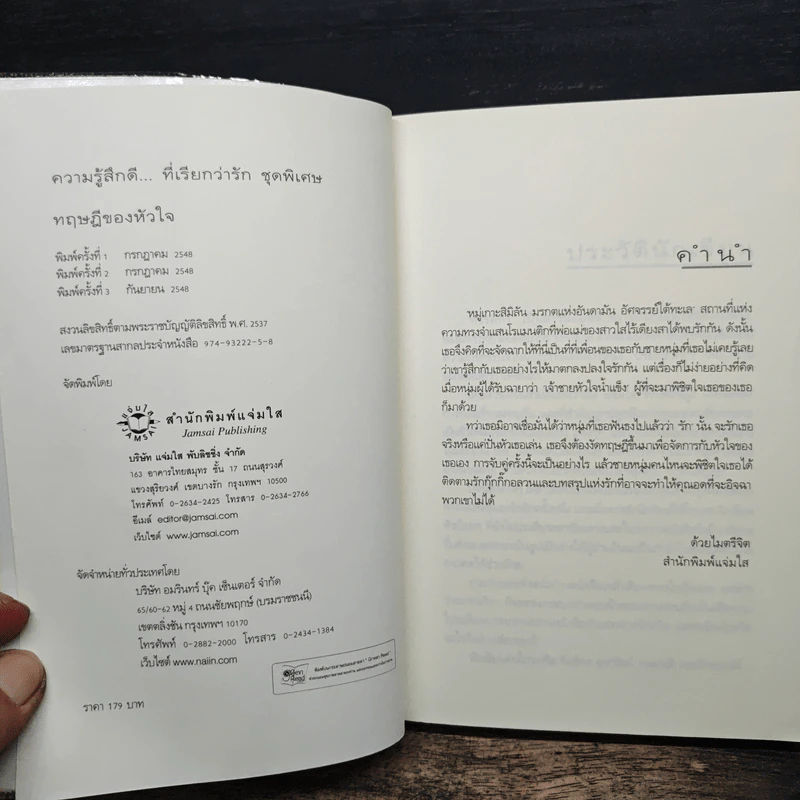 ความรู้สึกดี... ที่เรียกว่ารัก ชุดพิเศษ
ทฤษฎีของหัวใจ
พิมพ์ครั้งที่ 1 กรกฎาคม 2548
พิมพ์ครั้งที่ 2 กรกฎาคม 2548
พิมพ์ครั้งที่ 3 กันยายน 2548
สงวนลิขสิทธิ์ตามพระราชบัญญัติลิขสิทธิ์ พ.ศ. 2537
เลขมาตรฐานสากลประจำหนังสือ 974-93222-5-8
จัดพิมพ์โดย
แจ่มใส
JAMSAI
สำนักพิมพ์แจ่มใส
Jamsai Publishing
บริษัท แจ่มใส พับลิชชิ่ง จำกัด
163 อาคารไทยสมุทร ชั้น 17 ถนนสุรวงศ์
แขวงสุริยวงศ์ เขตบางรัก กรุงเทพฯ 10500
โทรศัพท์ 0-2634-2425 โทรสาร 0-2634-2766
อีเมล์ editor@jamsai.com
เว็บไซต์ www.jamsai.com
จัดจำหน่ายทั่วประเทศโดย
บริษัท อมรินทร์ บุ๊ค เซ็นเตอร์ จำกัด
65/60-62 หมู่ 4 ถนนชัยพฤกษ์ (บรมราชชนนี)
เขตตลิ่งชัน กรุงเทพฯ 10170
โทรศัพท์ 0-2882-2000 โทรสาร 0-2434-1384
เว็บไซต์ www.naiin.com
Green Read
ราคา 179 บาท
คำนำ
หมู่เกาะสิมิลัน มรกตแห่งอันดามัน อัศจรรย์ใต้ทะเล สถานที่แห่ง
ความทรงจำแสนโรแมนติกที่พ่อแม่ของสาวใสไร้เดียงสาได้พบรักกัน ดังนั้น
เธอจึงคิดที่จะจัดฉากให้ที่นี่เป็นที่ที่เพื่อนของเธอกับชายหนุ่มที่เธอไม่เคยรู้เลย
ว่าเขารู้สึกกับเธออย่างไรให้มาตกลงปลงใจรักกัน แต่เรื่องก็ไม่ง่ายอย่างที่คิด
เมื่อหนุ่มผู้ได้รับฉายาว่า 'เจ้าชายหัวใจน้ำแข็ง' ผู้ที่จะมาพิชิตใจเธอของเธอ
ก็มาด้วย
ทว่าเธอมิอาจเชื่อมั่นได้ว่าหนุ่มที่เธอฟันธงไปแล้วว่า 'รัก' นั้น จะรักเธอ
จริงหรือแค่ปั่นหัวเธอเล่น เธอจึงต้องงัดทฤษฎีขึ้นมาเพื่อจัดการกับหัวใจของ
เธอเอง การจับคู่ครั้งนี้จะเป็นอย่างไร แล้วชายหนุ่มคนไหนจะพิชิตใจเธอได้
ติดตามรักกุ๊กกิ๊กอลวนและบทสรุปแห่งรักที่อาจจะทำให้คุณอดที่จะอิจฉา
พวกเขาไม่ได้
ด้วยไมตรีจิต
สำนักพิมพ์แจ่มใส